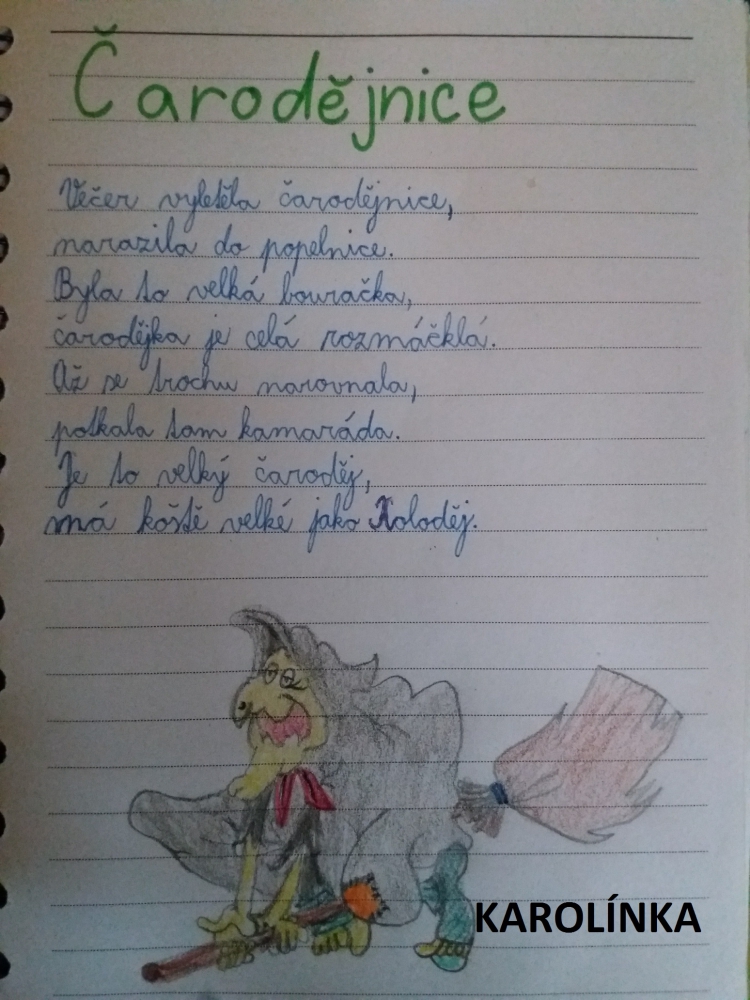 Čarodějnice
Večer vyletěla čarodějnice,
narazila do popelnice.
Byla to velká bouračka,
čarodějka je celá rozmáčklá.
Až se trochu narovnala,
potkala tam kamaráda.
Je to velký čaroděj,
má koště velké jako Xoloděj.
KAROLÍNKA